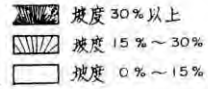 坡度30%以上
坡度15%～30%
坡度0%～15%